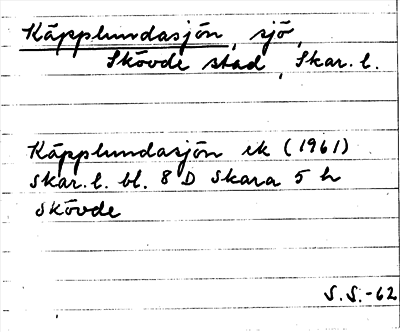 Käpplundasjön, sjö,
Skövde stad, Skar. l.
Käpplundasjön ek (1961)
Skar. l. bl. 8 D Skara 5 h
Skövde
S.S.-62